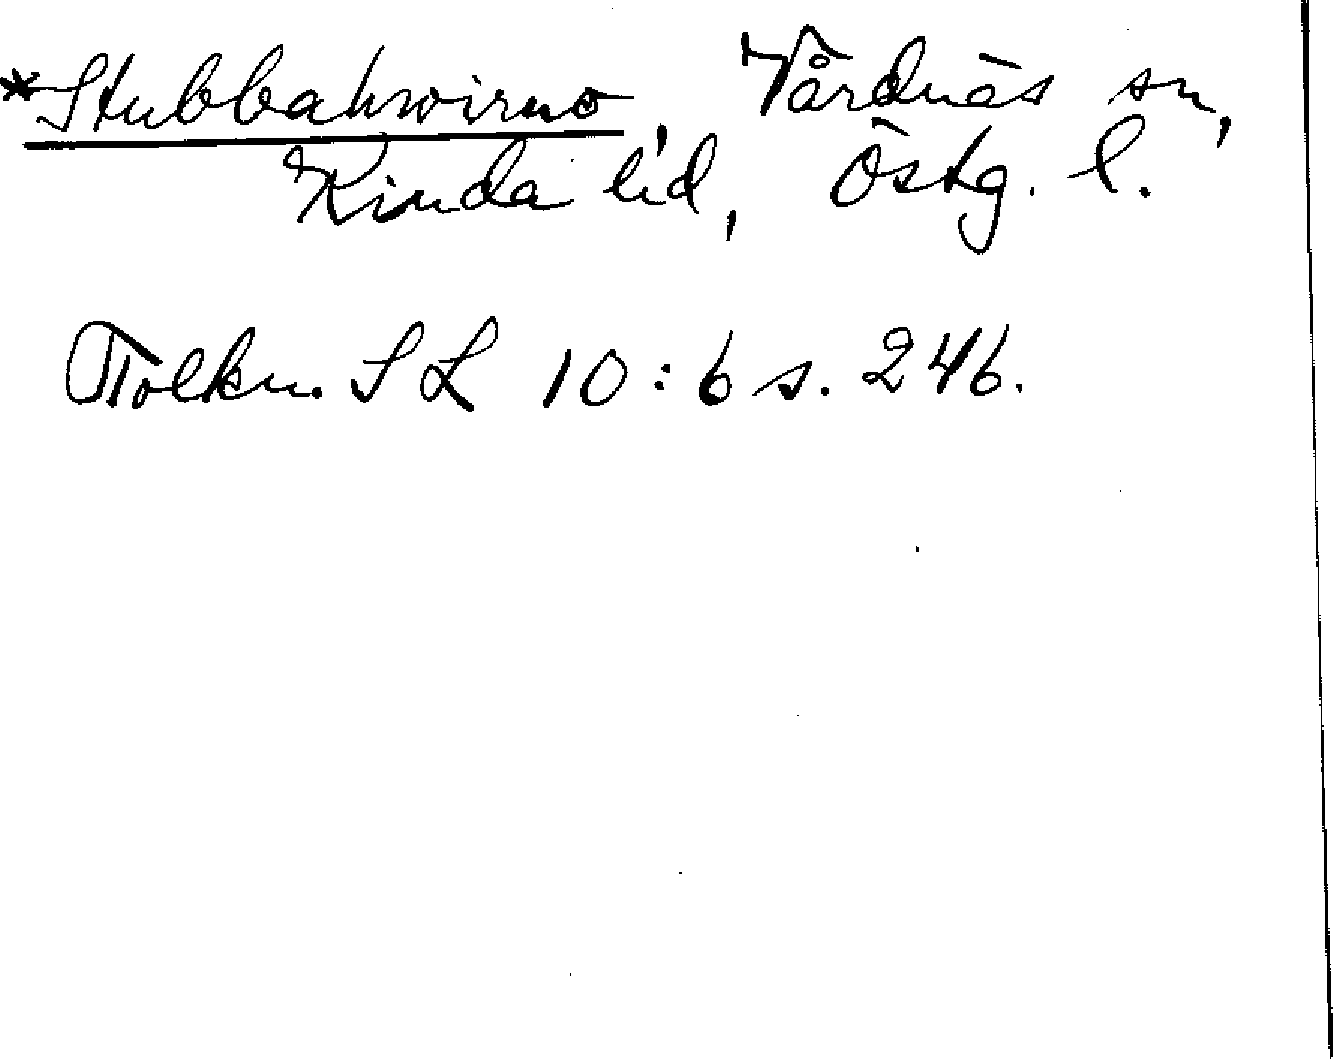 *Stubbahwirno, Vårdnäs sn,
Kinda hd, Östg. l.
Tolkn. SL 10:6 s. 246.